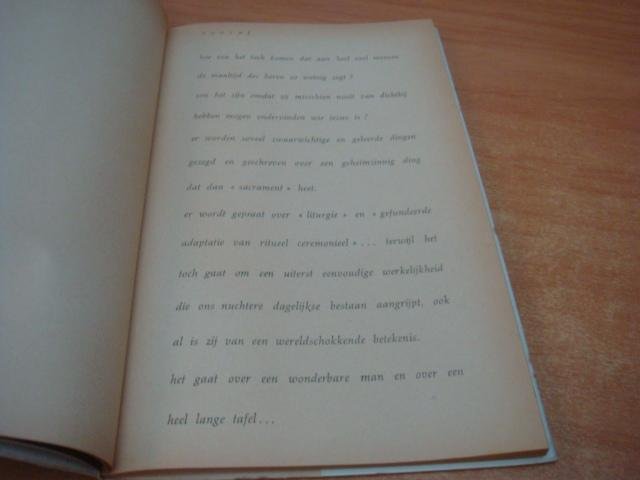 vooraf
hoe zou het toch komen dat aan heel veel mensen
de maaltijd des heren zo weinig zegt ?
zou het zijn omdat zij misschien nooit van dichtbij
hebben mogen ondervinden wie jezus is ?
er worden zoveel zwaarwichtige en geleerde dingen
gezegd en geschreven over een geheimzinnig ding
dat dan « sacrament » heet.
er wordt gepraat over « liturgie » en « gefundeerde
adaptatie van ritueel ceremonieel » ... terwijl het
toch gaat om een uiterst eenvoudige werkelijkheid
die ons nuchtere dagelijkse bestaan aangrijpt, ook
al is zij van een wereldschokkende betekenis.
het gaat over een wonderbare man en over een
heel lange tafel ...